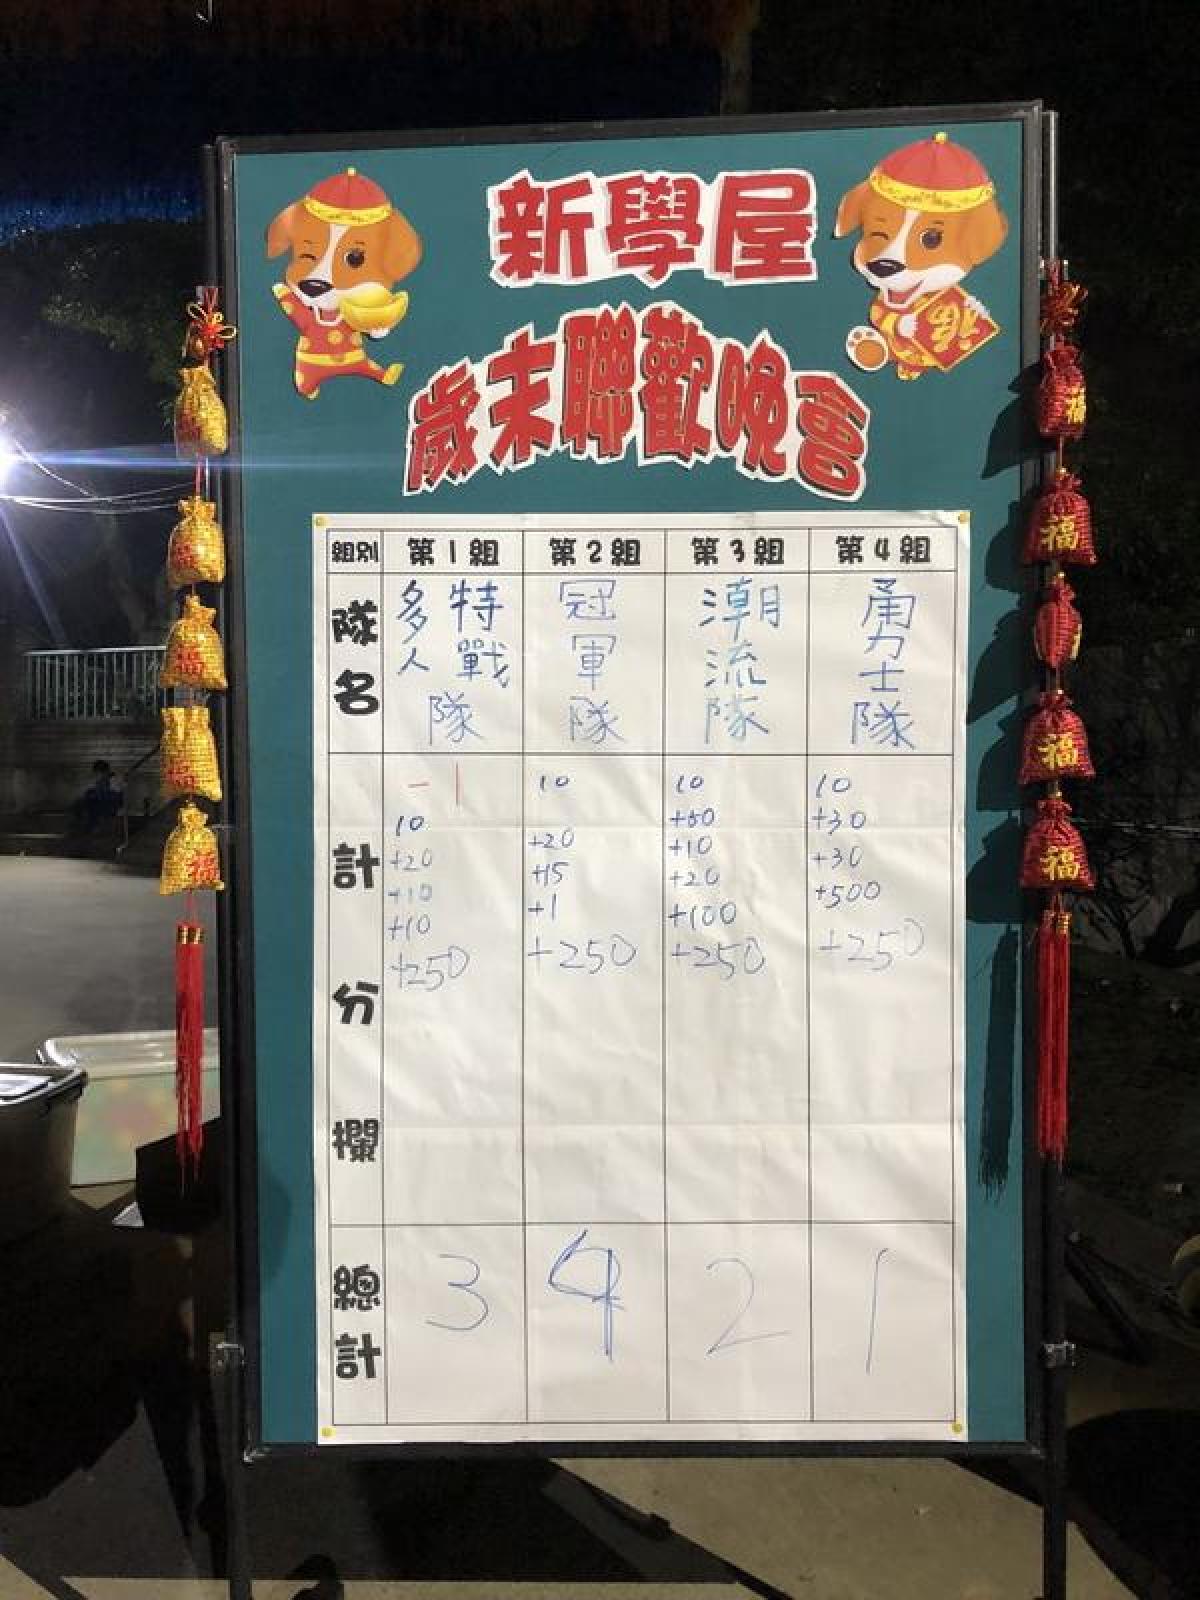 新學屋
歲末聯歡晚會
組別 第1組 第2組 第3組 第4組
隊名 多人特戰隊 冠軍隊 潮流隊 勇士隊
計分欄
-1
10
+20
+10
+10
+250
10
+20
+15
+1
+250
10
+10
+20
+100
+250
10
+30
+30
+500
+250
總計 3 4 2 1
福
福
福
福
福
福
福
福
福